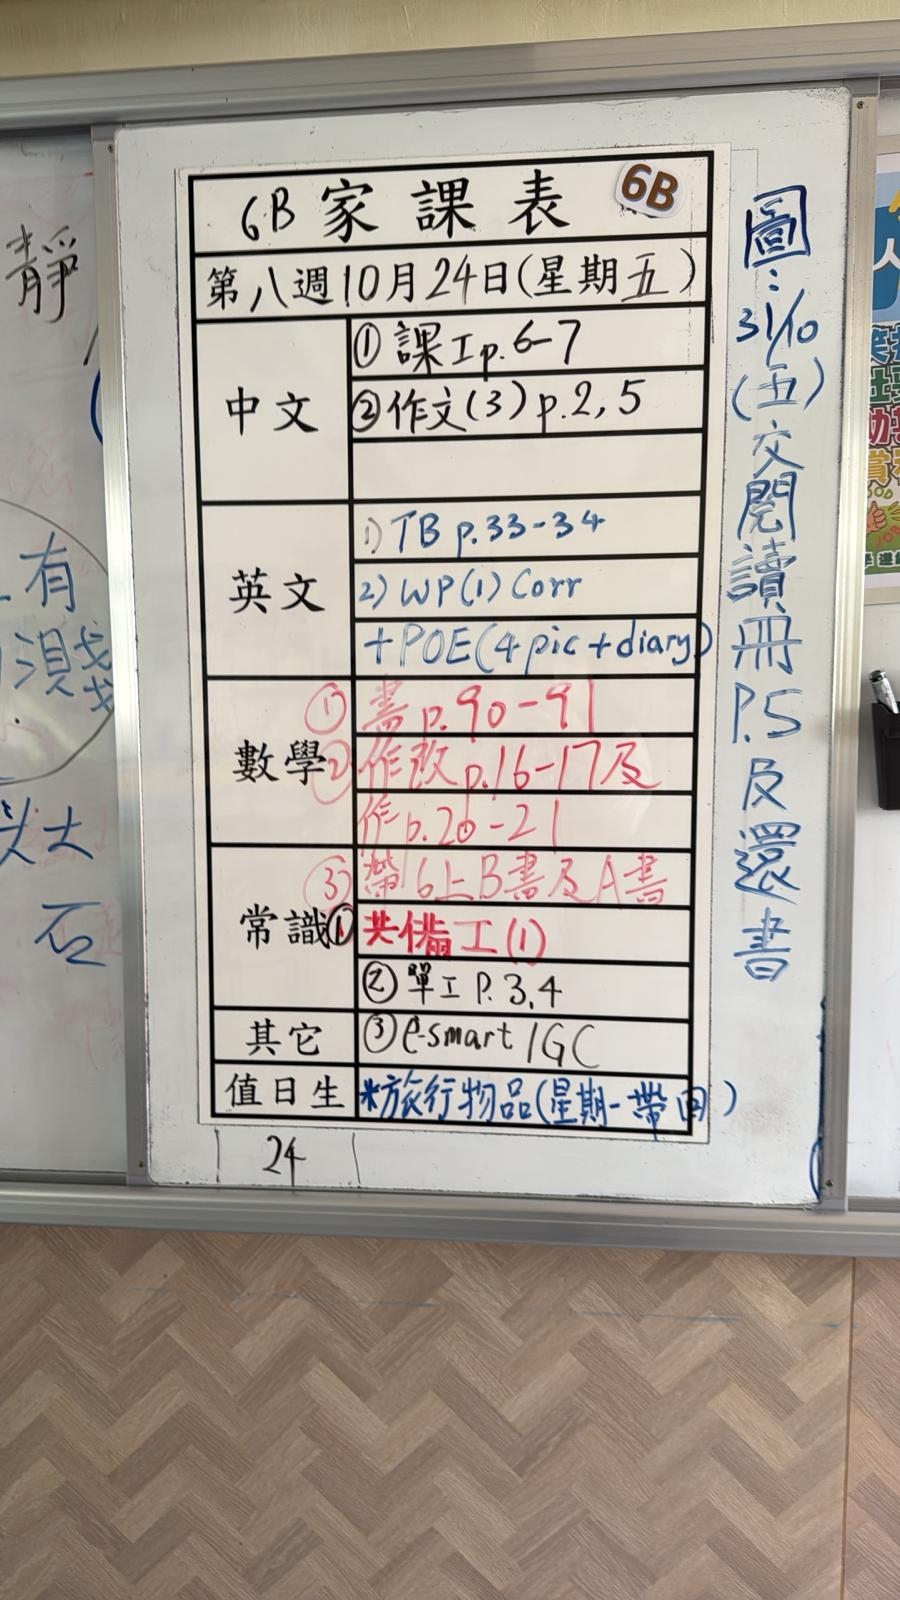 6B 家 課 表 6B
第八週10月24日(星期五)
中文
① 課工p.6-7
②作文(3) p.2,5
英文
1) TB p.33-34
2) WP(1) Corr
+POE(4 pic + diary)
數學
① 書 p.90-91
② 作改 p.16-17及
作p.20-21
③ 帶6上B書及A書
常識
① 共備工(1)
② 單工 P.3,4
其它
③ e-smart /GC
值日生
*旅行物品(星期一帶回)
24
圖:31/10(五)交閱讀冊P.5及還書
靜
有
淺
石